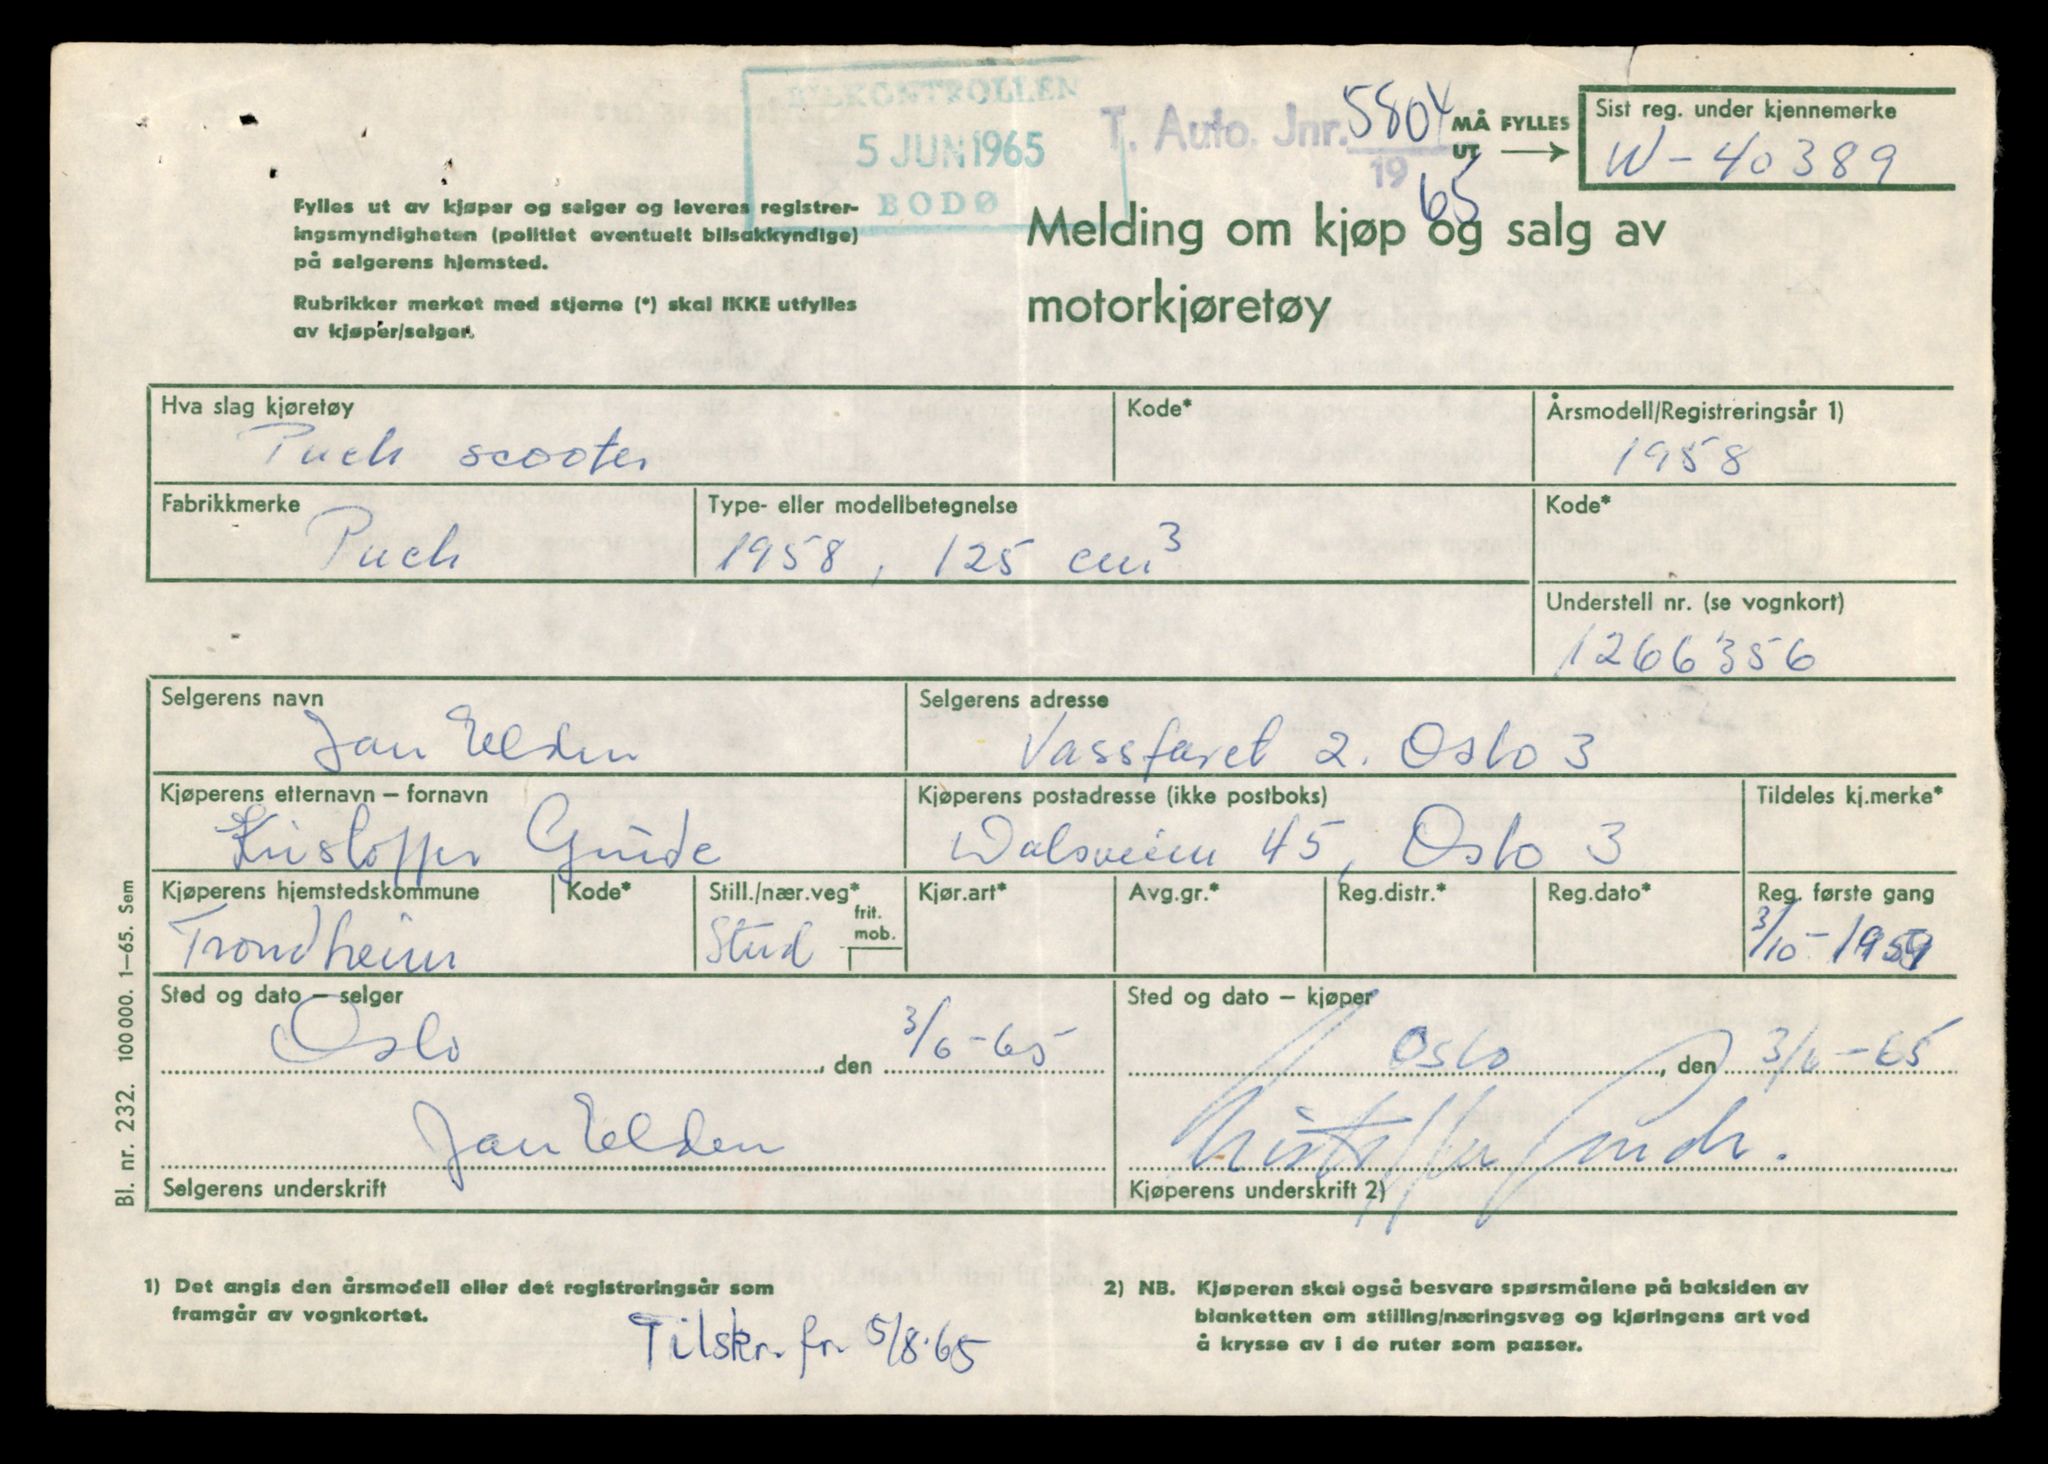 BILKONTROLLEN
5 JUN 1965
BODØ
T. Auto. Jnr. 5804
19 65
MÅ FYLLES
UT
Sist reg. under kjennemerke
W - 40389
Fylles ut av kjøper og selger og leveres registrer-
ingsmyndigheten (politiet eventuelt bilsakkyndige)
på selgerens hjemsted.
Rubrikker merket med stjerne (*) skal IKKE utfylles
av kjøper/selger.
Melding om kjøp og salg av
motorkjøretøy
Hva slag kjøretøy
Puch scooter
Kode*
Årsmodell/Registreringsår 1)
1958
Fabrikkmerke
Puch
Type- eller modellbetegnelse
1958, 125 cm³
Kode*
Understell nr. (se vognkort)
1266356
Selgerens navn
Jan Elden
Selgerens adresse
Vassfaret 2. Oslo 3
Kjøperens etternavn – fornavn
Kristoffer
Kjøperens postadresse (ikke postboks)
Dalsveien 45, Oslo 3
Tildeles kj.merke*
Kjøperens hjemstedskommune
Trondheim
Kode*
Still./nær.veg*
Stud
frit.
mob.
Kjør.art*
Avg.gr.*
Reg.distr.*
Reg.dato*
Reg. første gang
3/10 - 1959
Sted og dato – selger
Oslo, den 3/6 - 65
Jan Elden
Selgerens underskrift
Sted og dato – kjøper
Oslo, den 3/6 - 65
Kristoffer
Kjøperens underskrift 2)
Bl. nr. 232. 100 000. 1–65. Sem
1) Det angis den årsmodell eller det registreringsår som
framgår av vognkortet.
Tilskr. fr. 5/8.65
2) NB. Kjøperen skal også besvare spørsmålene på baksiden av
blanketten om stilling/næringsveg og kjøringens art ved
å krysse av i de ruter som passer.